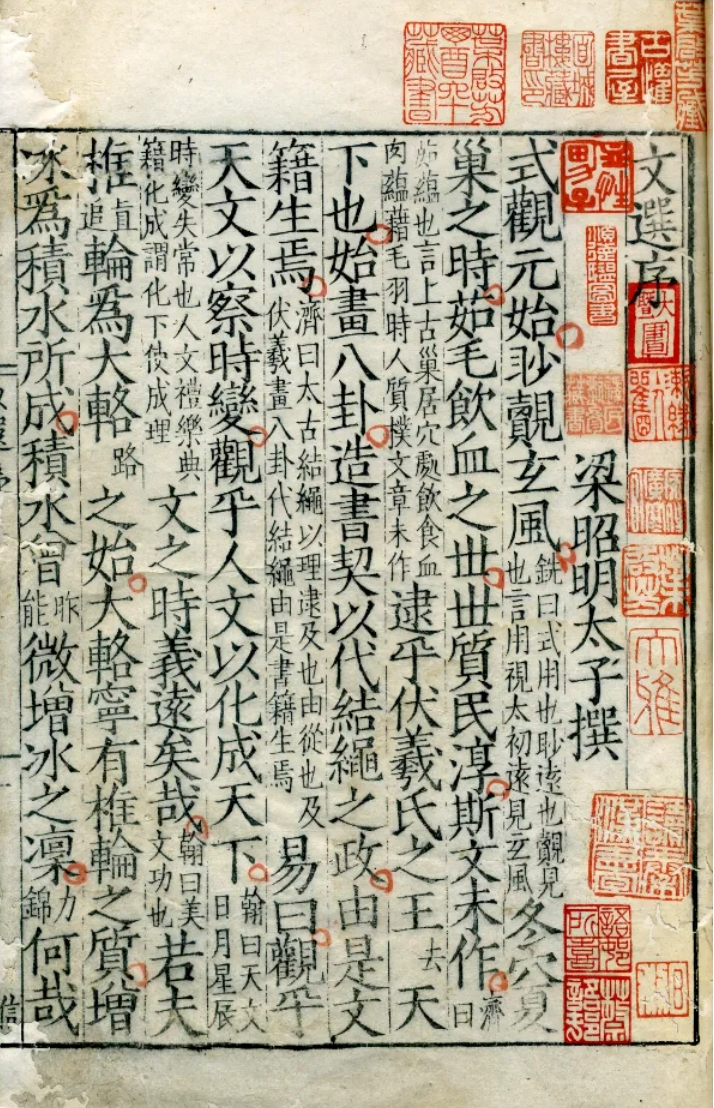 古懽書屋
大雅
文選序
梁昭明太子撰
式觀元始眇覿玄風銑曰式用也眇遠也覿見也言用視太初遠見玄風冬穴夏
巢之時茹毛飲血之世世質民淳斯文未作濟曰
茹蘊也言上古巢居穴處飲食血肉蘊藉毛羽時人質樸文章未作逮乎伏羲氏之王去天
下也始畫八卦造書契以代結繩之政由是文
籍生焉濟曰太古結繩以理逮及也由從也及伏羲畫八卦代結繩由是書籍生焉易曰觀乎
天文以察時變觀乎人文以化成天下翰曰天文日月星辰
時變失常也人文禮樂典籍化成謂化下使成理文之時義遠矣哉翰曰美文功也若夫
椎直追輪爲大輅路之始大輅寧有椎輪之質增
冰爲積水所成積水曾昨能微增冰之凜力錦何哉